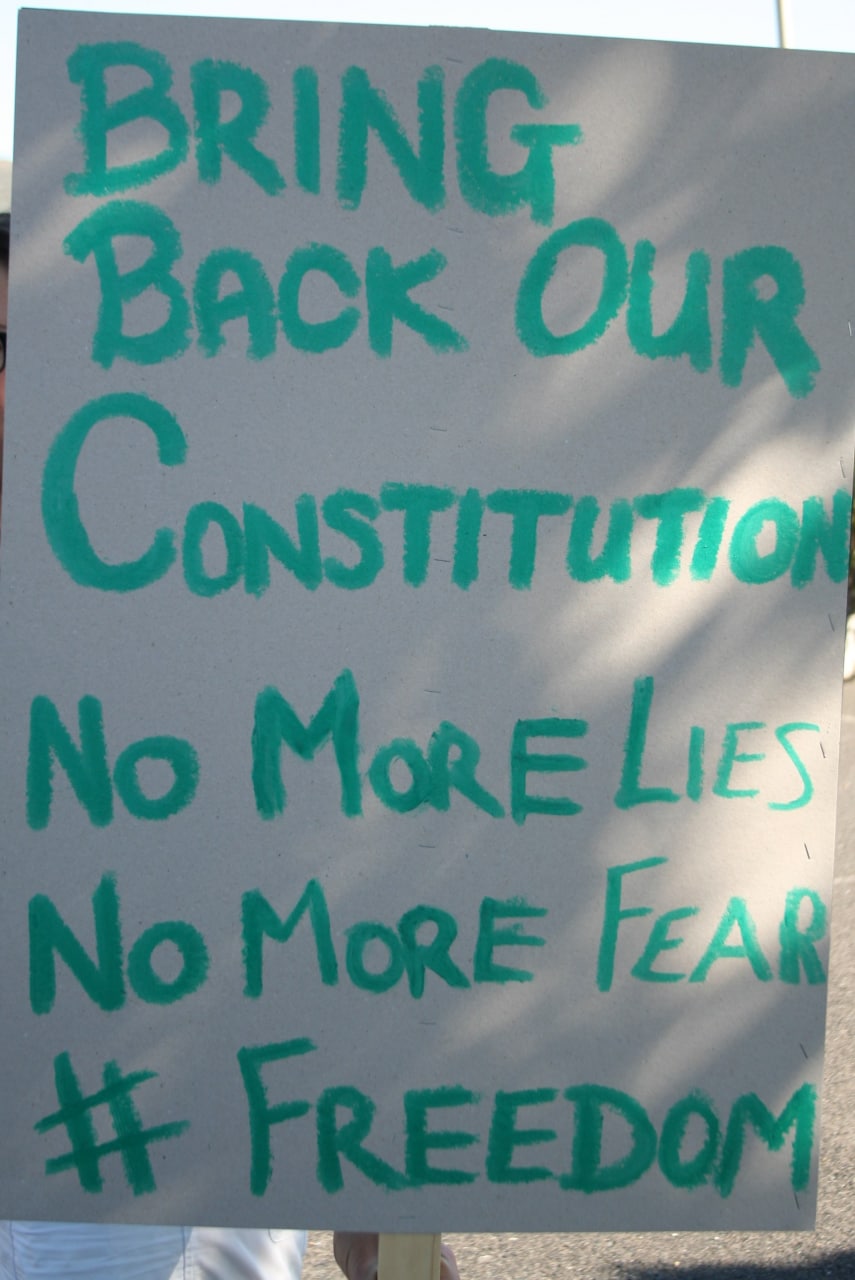 BRING
BACK OUR
CONSTITUTION
NO MORE LIES
NO MORE FEAR
# FREEDOM